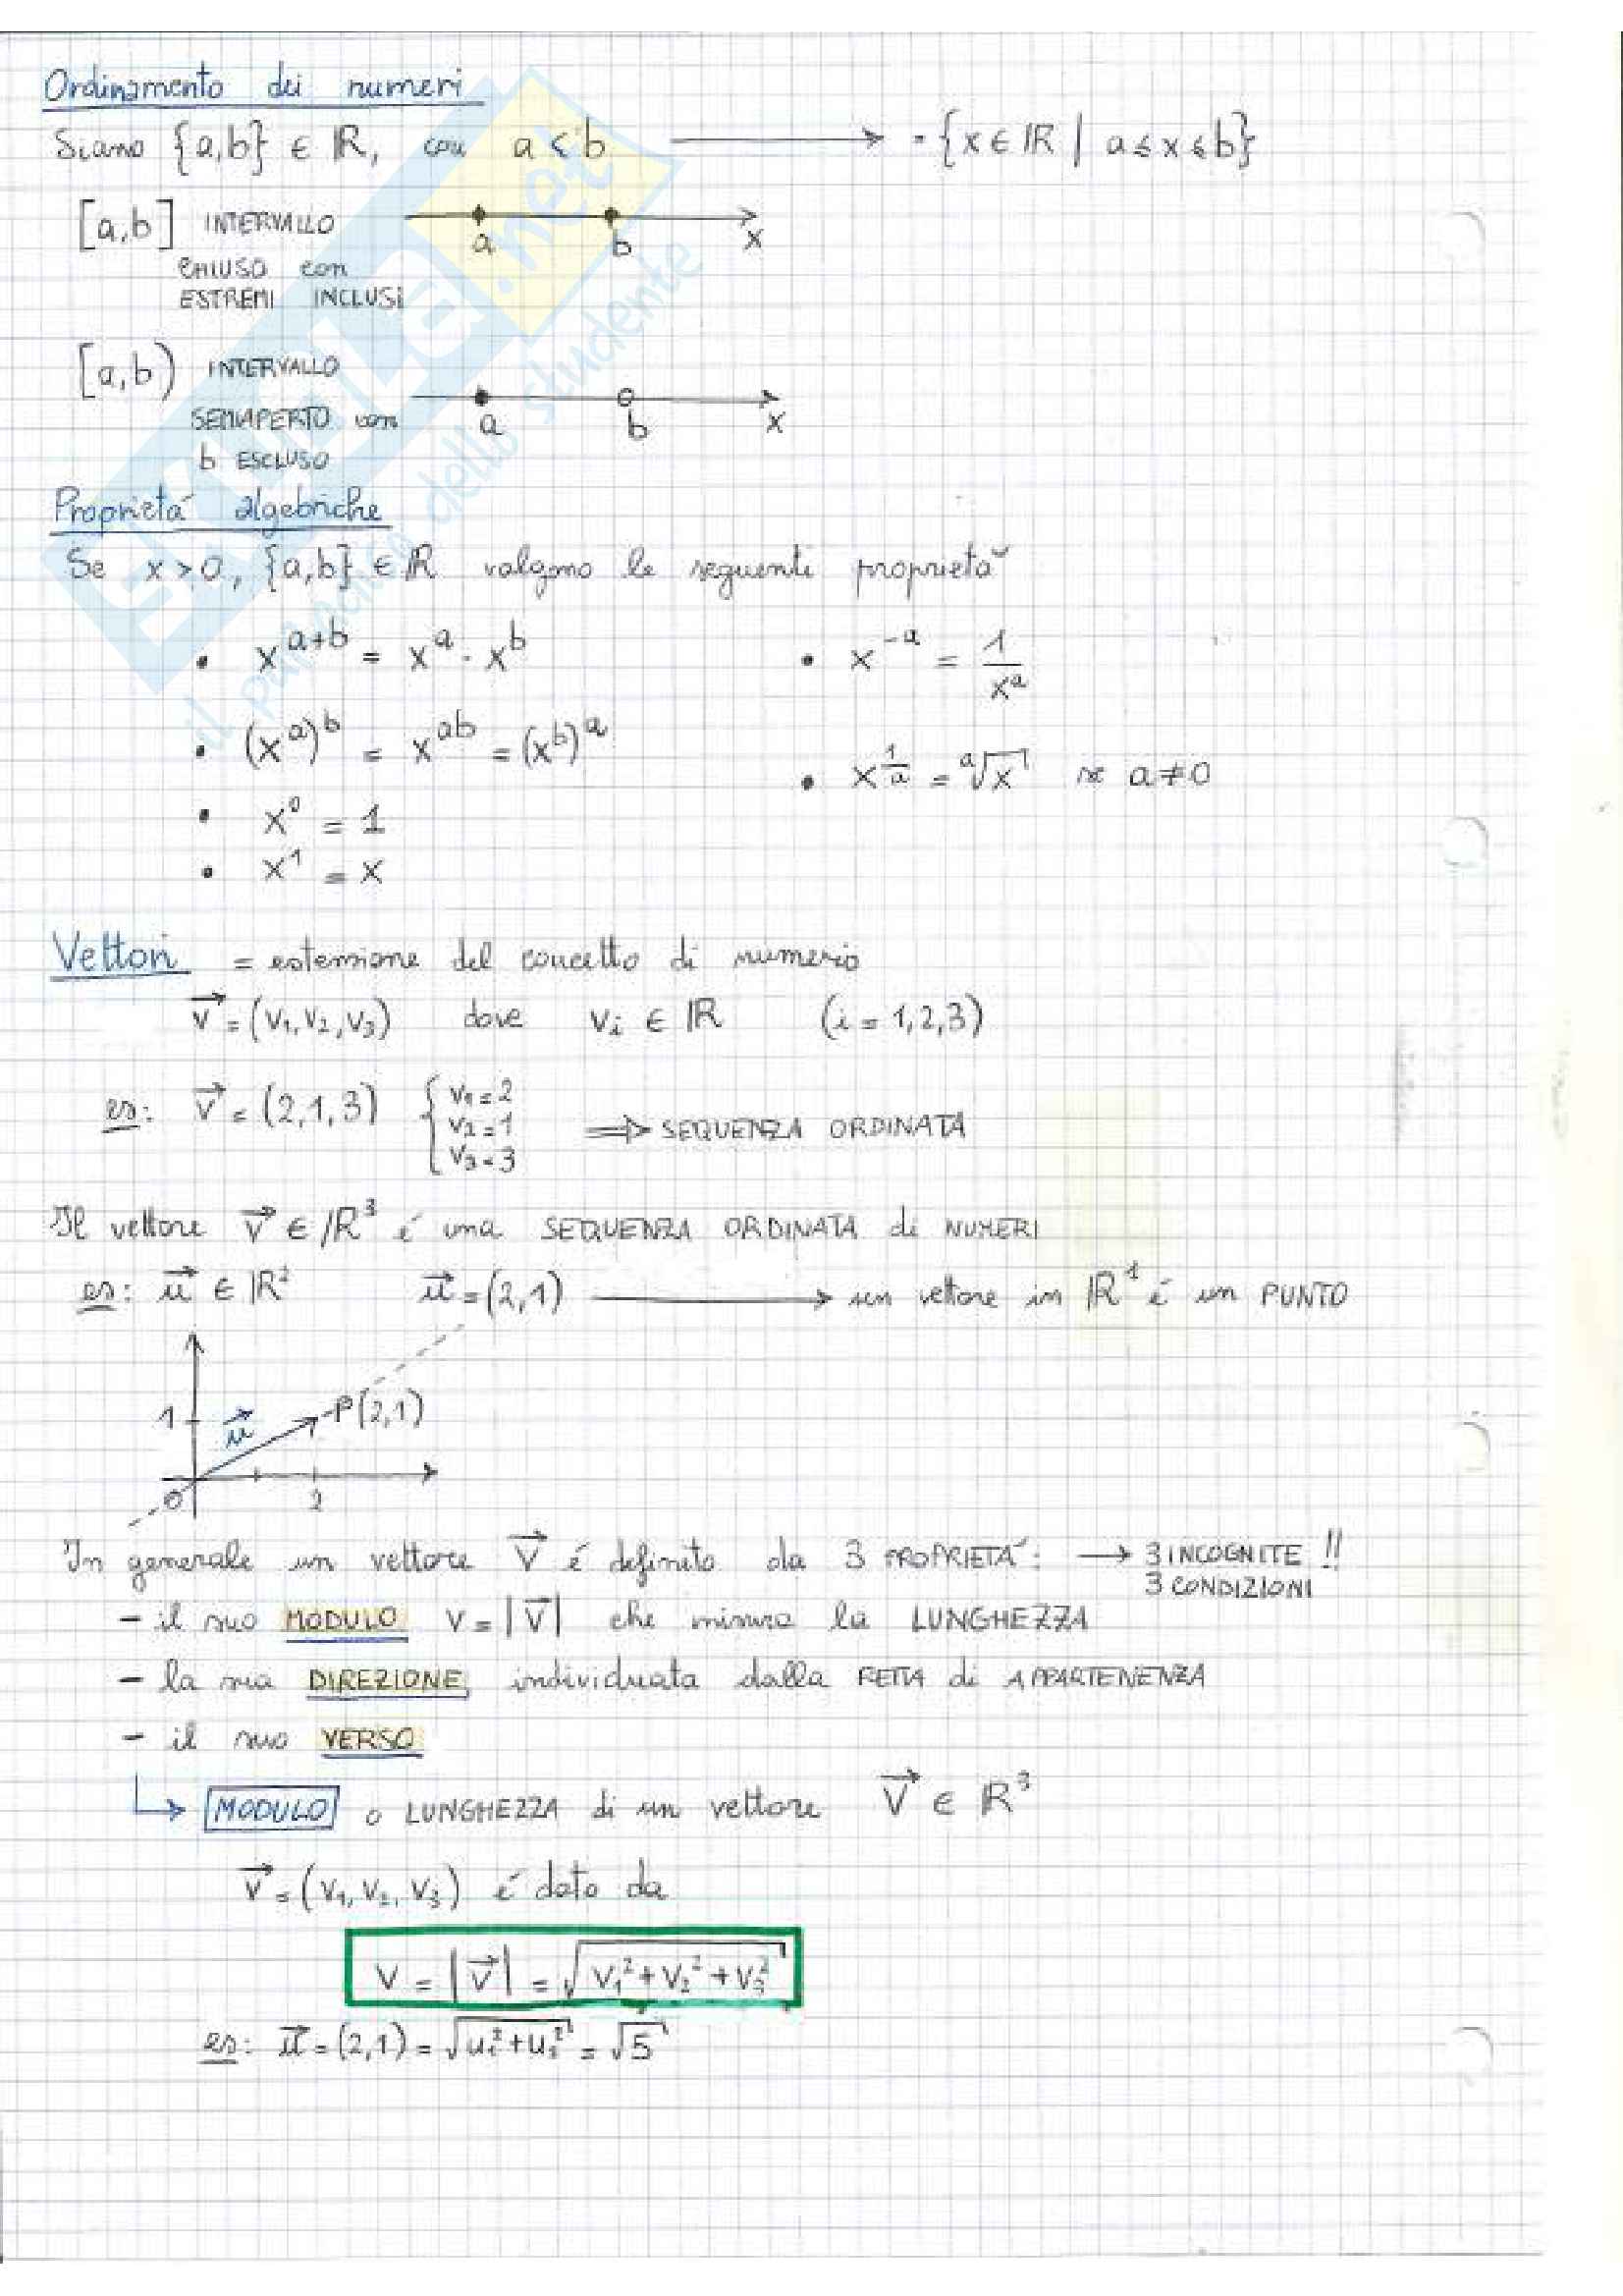 Ordinamento dei numeri
Siano {a,b} ∈ ℝ, con a < b ⟶ = {x ∈ ℝ | a ≤ x ≤ b}
[a,b] INTERVALLO
CHIUSO con
ESTREMI INCLUSI
a b x
[a,b) INTERVALLO
SEMIAPERTO con
b ESCLUSO
a b x
Proprietá algebriche
Se x > 0, {a,b} ∈ ℝ valgono le seguenti proprietá
• x^(a+b) = x^a · x^b
• x^(-a) = 1/x^a
• (x^a)^b = x^(ab) = (x^b)^a
• x^(1/a) = ᵃ√x se a ≠ 0
• x⁰ = 1
• x¹ = x
Vettori = estensione del concetto di numero
v⃗ = (v₁, v₂, v₃) dove vᵢ ∈ ℝ (i = 1,2,3)
es: v⃗ = (2,1,3) { v₁ = 2
v₂ = 1 ⟹ SEQUENZA ORDINATA
v₃ = 3
Il vettore v⃗ ∈ ℝ³ é una SEQUENZA ORDINATA di NUMERI
es: u⃗ ∈ ℝ² u⃗ = (2,1) ⟶ un vettore in ℝ¹ é un PUNTO
1 u⃗ P(2,1)
0 2
In generale un vettore v⃗ é definito da 3 PROPRIETÁ: → 3 INCOGNITE !!
3 CONDIZIONI
- il suo MODULO v = |v⃗| che misura la LUNGHEZZA
- la sua DIREZIONE, individuata dalla RETTA di APPARTENENZA
- il suo VERSO
↳ MODULO o LUNGHEZZA di un vettore v⃗ ∈ ℝ³
v⃗ = (v₁, v₂, v₃) é dato da
v = |v⃗| = √(v₁² + v₂² + v₃²)
es: u⃗ = (2,1) = √(u₁² + u₂²) = √5
SKUOLA.net
il paradiso dello studente